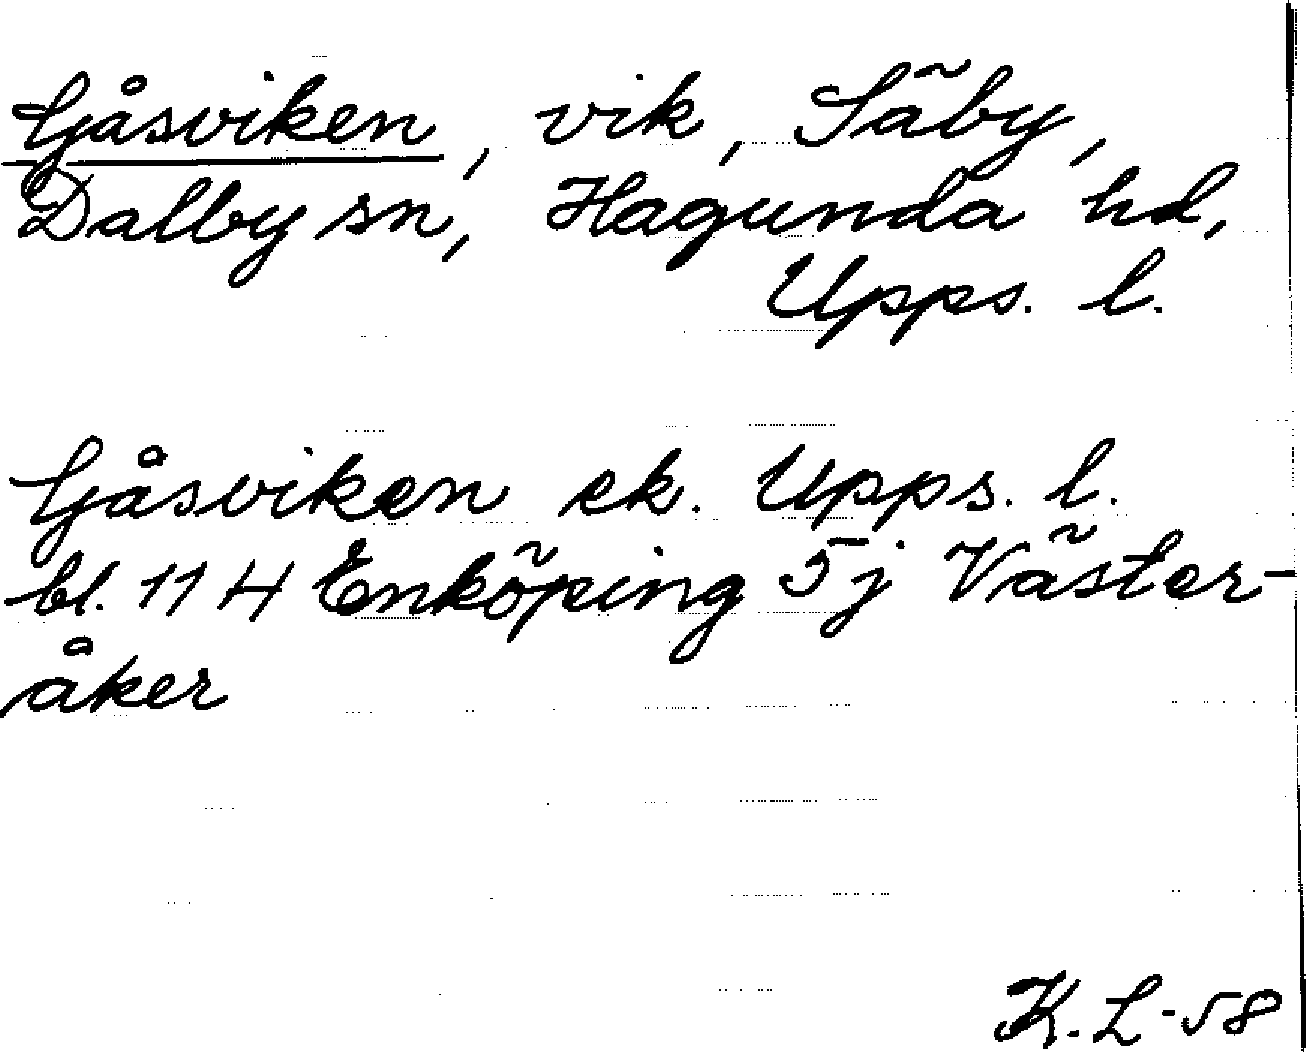 Gåsviken, vik, Säby,
Dalby sn, Hagunda hd,
Upps. l.
Gåsviken ek. Upps. l.
bl. 11 H Enköping 5j Väster-
åker
K. L-58